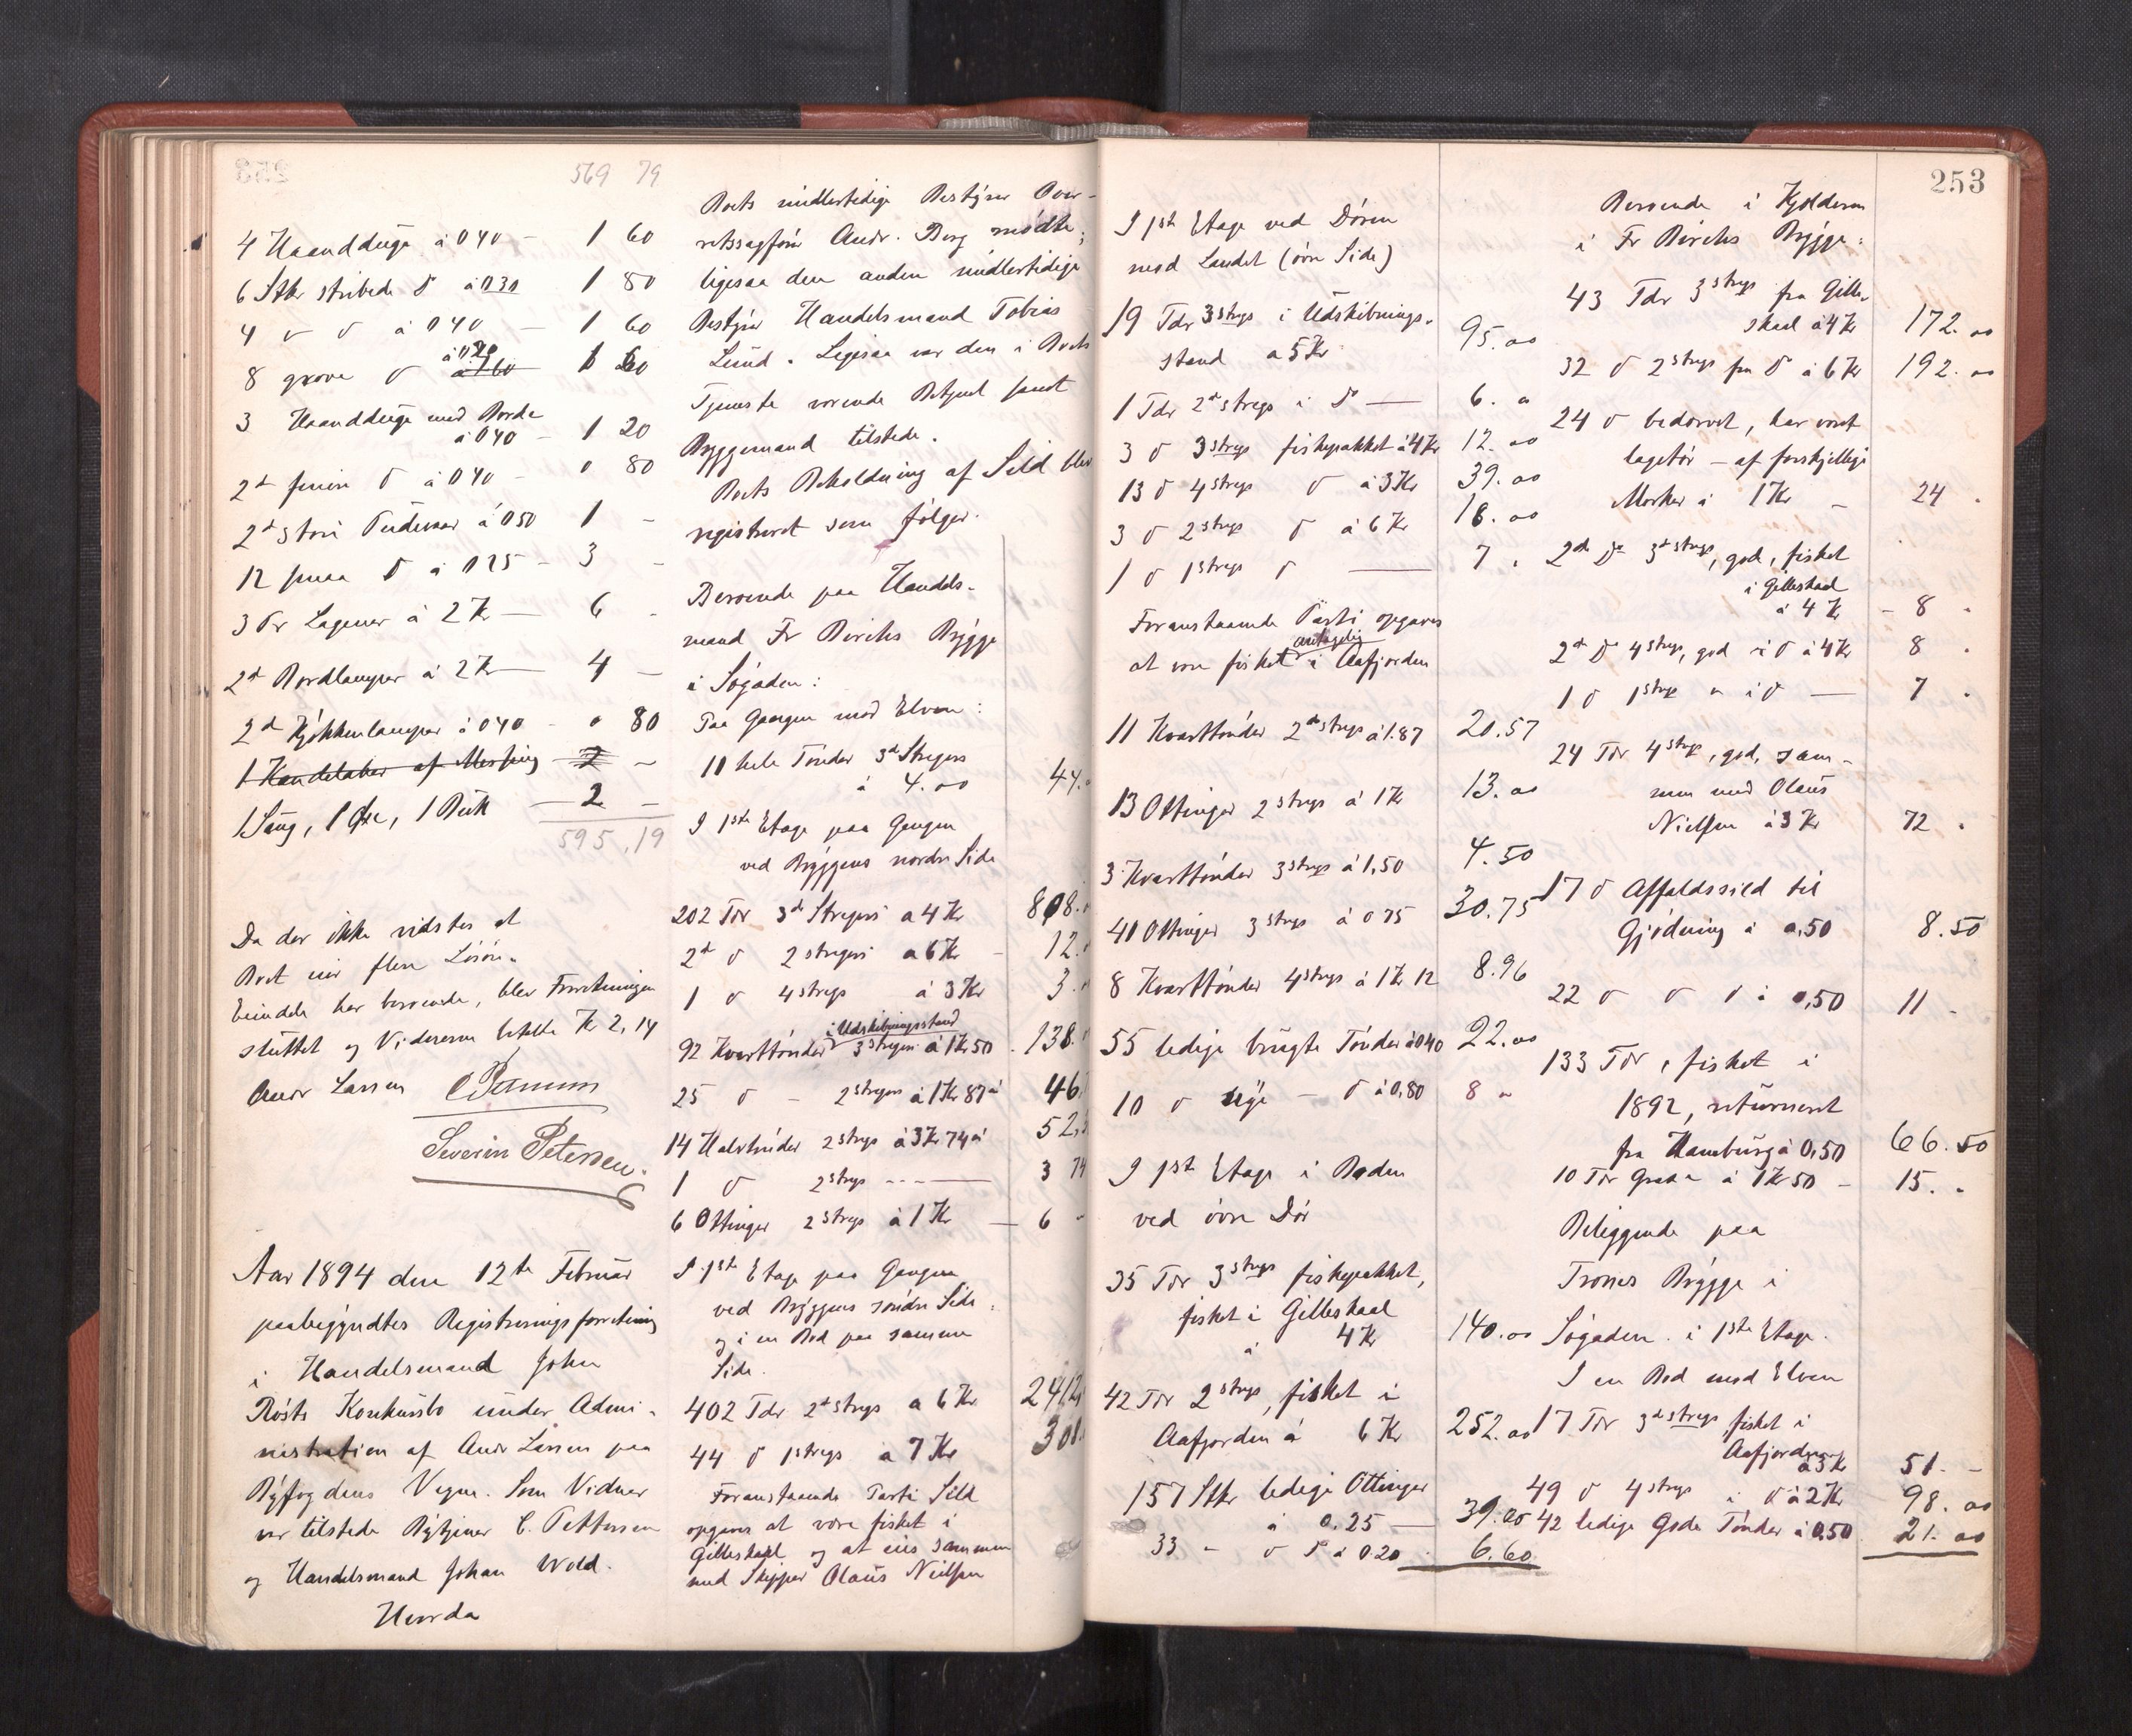 569 79
4 Haanddüge à 040 - 1 60
6 Stkr stribede do à 030 1 80
4 do à 040 - 1 60
8 grove do à 020 1 60
3 Haanddüge med Borde
à 040 - 1 20
2 do à 040 - 0 80
2 store à 050 1 -
12 smaa do à 025 - 3 -
3 Pr Lagener à 2 Kr - 6 -
2 Bordlamper à 2 Kr - 4 -
2 Kjökkenlamper à 040 - 0 80
1 Kandelaber af Messing 2 -
1 Saug, 1 Øxe, 1 - 2 -
595,19
Da der ikke vidstes at
Boet eier flere Lösöre
Eiendele her beroende, blev Forretningen
sluttet og Viderne betalte Kr 2,14
Andr Larsen
Severin Petersen
Aar 1894 den 12te Februar
paabegyndtes Registreringsforretning
i Handelsmand John
Røsts Konkursbo under Admi-
nistration af Andr Larsen paa
Byfogdens Vegne. Som Vidner
var tilstede Bytjener C. Pettersen
og Handelsmand Johan Wold.
Herved
Boets midlertidige Bestyrer Over-
retssagförer Andr. Berg mödte,
ligesaa den anden midlertidige
Bestyrer Handelsmand Tobias
Lund. Ligesaa var den i Boets
Tjeneste værende Betjent samt
Bryggemand tilstede.
Boets Beholdning af Sild blev
registreret som fölger.
Beroende paa Handels-
mand Fr Birchs Brygge
i Sögaden:
Paa Gangen mod Elven:
11 hele Tönder 3de Stregers
à 4.00 44.
I 1ste Etage paa Gangen
ved Bryggens nordre Side
202 Tdr 3de Stregers a 4 Kr 808.
2 do 2 stregers a 6 Kr - 12.
1 do 4 stregs à 3 Kr 3.
i Udskibningsstand
92 Kvarttönder 3 stregers à 1 Kr 50 138.
25 do - 2 stregers à 1 Kr 87 46.
14 Halvtönder 2 stregs à 3 Kr 74 52,
1 do 2 stregs - 3 74
6 Ottinger 2 stregs à 1 Kr - 6
I 1ste Etage paa Gangen
ved Bryggens söndre Side
og i en Bod paa samme
Side.
402 Tdr 2 stregs a 6 Kr 2412
44 do 1 stregs a 7 Kr 308.
Foranstaaende Parti Sild
opgaves at være fisket i
Gilleskaal og at eies sammen
med Skipper Olaus Nielsen
253
I 1ste Etage ved Dören
mod Landet (övre Side)
19 Tdr 3 stregs i Udskibnings-
stand a 5 Kr 95.00
1 Tdr 2 stregs i do - 6.
3 do 3 stregs fiskepakket à 4 Kr 12.00
13 do 4 stregs do à 3 Kr 39.00
3 do 2 stregs do à 6 Kr 18.00
1 do 1 stregs do - 7.
Foranstaaende Parti opgaves
antagelig
at være fisket i Aafjorden
11 Kvarttönder 2 stregs à 1.87 20.57
13 Ottinger 2 stregs à 1 Kr 13.00
3 Kvarttönder 3 stregs à 1,50 4.50
41 Ottinger 3 stregs à 0 75 30.75
8 Kvarttönder 4 stregs à 1 Kr 12 8.96
55 ledige brugte Tönder à 040 22.00
10 do nye - do à 0,80 8
I 1ste Etage i Boden
ved övre Dör
35 Tdr 3 stregs fiskepakket,
fisket i Gilleskaal
à 4 Kr 140.00
42 Tdr 2 stregs, fisket i
Aafjorden à 6 Kr 252.00
157 Stkr ledige Ottinger
à 0.25 - 39.25
33 - do do à 020 6.60
Beroende i Kjelderen
i Fr Birchs Brygge:
43 Tdr 3 stregs fra Gille-
skaal à 4 Kr 172.00
32 do 2 stregs fra do à 6 Kr 192.00
24 do bedærvet, har været
lagetör - af forskjellige
Merker à 1 Kr - 24.
2 do 3 stregs, god, fisket
i Gilleskaal
à 4 Kr - 8
2 do 4 stregs, god i do à 4 Kr 8
1 do 1 stregs i do - 7
24 Tdr 4 stregs, god, sam-
men med Olaus
Nielsen à 3 Kr 72.
17 do Affaldssild til
Gjödning à 0,50 8.50
22 do do do à 0,50 11 -
133 Tdr, fisket i
1892, returneret
fra Hamburg à 0,50 66.50
10 Tdr à 1 Kr 50 - 15.
Beliggende paa
Trones Brygge i
Sögaden. i 1ste Etage.
I en Bod mod Elven
17 Tdr 3 stregs fisket i
Aafjorden
à 3 Kr 51. -
49 do 4 stregs i do à 2 Kr 98.00
42 ledige gode Tönder à 0,50 21.00